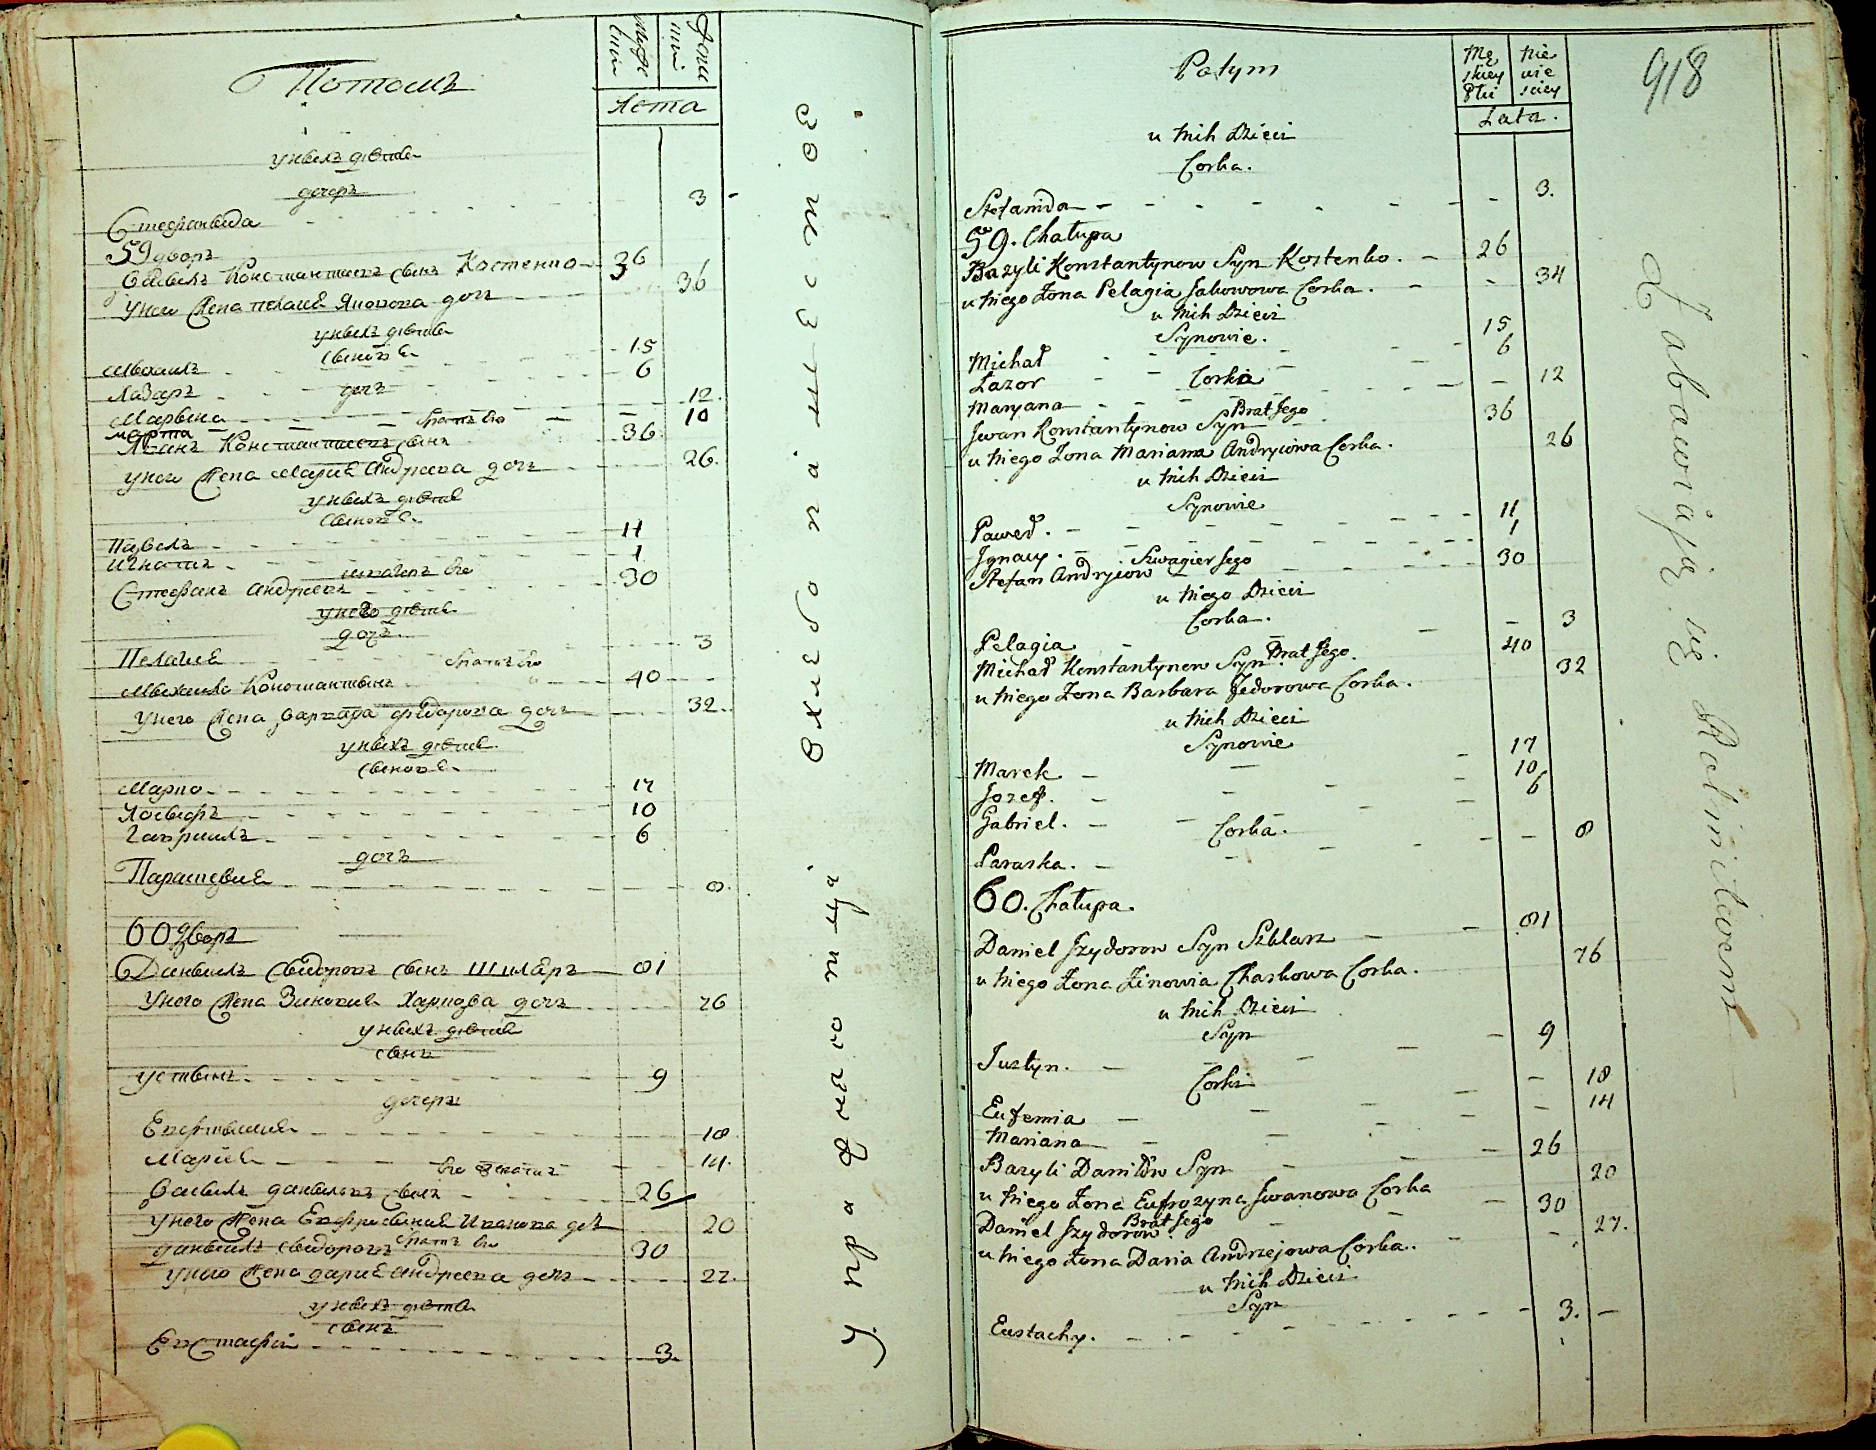 Потомъ
Мужескій
Женскій
Лета
у ныхъ дѣти
дочеръ
Стефаныда - 3
59 дворъ
Василъ Константиновъ сынъ Костенко - 36
у него жена Пелагія Яковова дочь - 36
у ныхъ дѣти
сынове
Мыхаилъ - 15
Лазаръ - 6
дочь
Марына - 12
Марта - 10
братъ его
Иванъ Константиновъ сынъ 36
у него жена Марія Андреева дочь - 26
у ныхъ дѣти
сынове
Павелъ - 11
Игнатій - 1
швагеръ его
Стефанъ Андреевъ - 30
у него дѣти
дочь
Пелагія - 3
братъ его
Мыхаило Константынъ - 40
у него жена Варвара Федорова дочь - 32
у ныхъ дѣти
сынове
Марко - 17
Иосыфъ - 10
Гавриилъ - 6
дочь
Парашкевія - 8
60 дворъ
Данылъ Сыдоровъ сынъ Шкляръ - 81
у него жена Зиновия Харкова дочь - 76
у ныхъ дѣти
сынъ
Устынъ - 9
дочери
Евфымия - 18
Марія - 14
его братъ
Василъ Даныловъ сынъ - 26
у него жена Евфросыния Иванова дочь 20
Данылъ Сыдоровъ братъ его 30
у него жена Дария Андреева дочь - 27
у ныхъ дѣти
сынъ
Евстафій - 3
Упражняются въ хлебопашестве
Potym
Męskiey Płci
Niewieściey
Lata.
918
u Nich Dzieci
Corka.
Stefanida - 3.
59. Chałupa
Bazyli Konstantynow Syn Kostenko. - 26
u Niego Żona Pelagia Jakowowa Corka. - 34
u Nich Dzieci
Synowie.
Michał - 15
Łazor - 6
Corka
Maryana - 12
Brat Jego
Jwan Konstantynow Syn - 36
u Niego Żona Marianna Andryiowa Corka. 26
u Nich Dzieci
Synowie
Paweł. - 11
Jgnacy. - 1
Szwagier Jego
Stefan Andryiow - 30
u Niego Dzieci
Corka.
Pelagia - 3
Michał Konstantynow Syn Brat Jego. 40
u Niego Żona Barbara Fedorowa Corka. 32
u Nich Dzieci
Synowie
Marek - 17
Jozef. - 10
Gabriel. - 6
Corka.
Paraska. - 8
60. Chałupa.
Daniel Jzydorow Syn Szklarz - 81
u Niego Żona Zinowia Charkowa Corka. 76
u Nich Dzieci
Syn
Justyn. - 9
Corki
Eufemia - 18
Mariana - 14
Bazyli Daniłow Syn - 26
u Niego Żona Eufrozyna Jwanowa Corka 20
Brat Jego
Daniel Jzydorow. - 30
u Niego Żona Daria Andrzejowa Corka. 27.
u Nich Dzieci
Syn
Eustachy. - 3.
Zabawiają się Rolnictwem